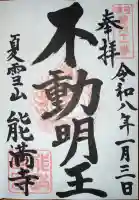 奉拝
令和八年一月三日
不動明王
夏雪山
能満寺